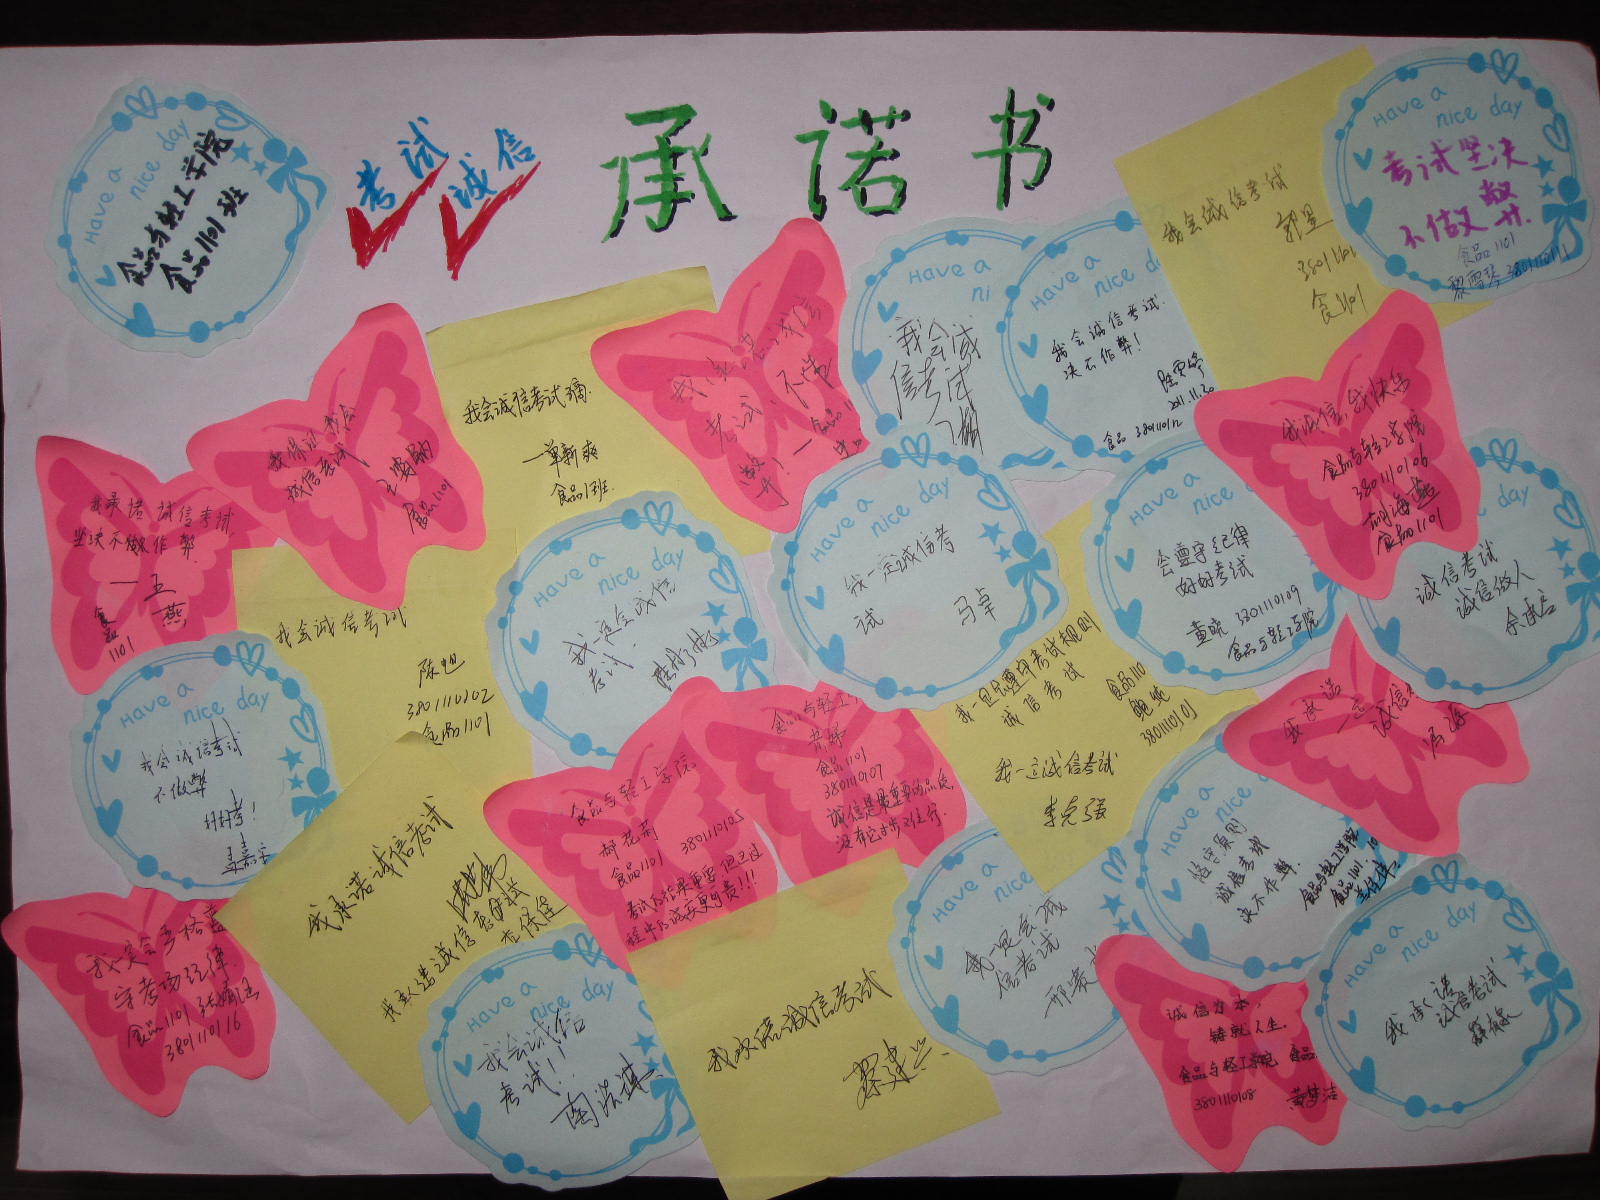 Have a
nice day
食品与轻工学院
食品1101班
考试
诚信
承诺书
我会诚信考试
3801110
食1101
Have a
nice day
考试坚决
不做弊
食品1101
黎雪琴 3801110111
我会诚信考试
单新爽
食品1班
Have a
ni
我会诚
信考试
Have a
nice d
我会诚信考试
决不作弊!
2011.11.20
食品 3801110112
我保证我会
诚信考试
食品1101
我承诺诚信考试,
坚决不做作弊
——王燕
食品
1101
我诚信,我快乐
食品与轻工学院
3801110106
胡海燕
食品1101
我会诚信考试
陈旭
3801110102
食品1101
Have a
nice day
我一定会诚信
考试.
Have a
nice day
我一定诚信考
试
马卓
Have a
nice
会遵守纪律
好好考试
黄晓 3801110109
食品与轻工学院
nice day
诚信考试
诚信做人
Have a
nice day
我会诚信考试
不做弊
好好考!
我一定会遵守考试规则
诚信考试
食品110
3801110101
我一定诚信考试
李克强
食品与轻工学院
食品1101 3801110105
考试的结果重要,但过
程中的诚实更可贵!!!
食品与轻工
食品1101
3801110107
诚信是最重要的品质,
没有它寸步难行.
我承诺
一定
诚信
Have a
nice
恪守原则
诚信考试
决不作弊.
食品与轻工学院
食品1101.10
我承诺诚信考试
我承诺诚信考试
我一定会严格遵
守考场纪律.
食品1101
3801110116
Have a
nice day
我会诚信
考试!!
陶洪琪
诚信考试
Have a
nice day
我一定会诚
信考试
诚信为本,
铸就人生.
食品与轻工学院 食品
3801110108 黄梦洁
Have a
nice day
我承诺
诚信考试